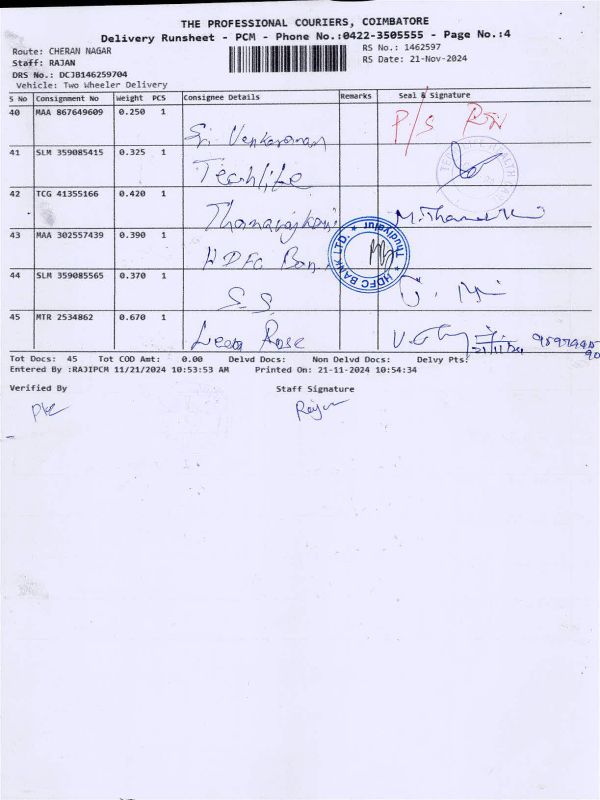 THE PROFESSIONAL COURIERS, COIMBATORE
Delivery Runsheet - PCM - Phone No.:0422-3505555 - Page No.:4
Route: CHERAN NAGAR
RS No.: 1462597
Staff: RAJAN
RS Date: 21-Nov-2024
DRS No.: DCJB146259704
Vehicle: Two Wheeler Delivery
S No Consignment No Weight PCS Consignee Details Remarks Seal & Signature
40 MAA 867649609 0.250 1
Sri Venkaraman P/S
41 SLM 359085415 0.325 1
Techlife
42 TCG 41355166 0.420 1
43 MAA 302557439 0.390 1
HDFC Ban
HDFC BANK LTD. * Thudiyalur *
44 SLM 359085565 0.370 1
S.S.
45 MTR 2534862 0.670 1
Leela Rose 21/11/24
Tot Docs: 45 Tot COD Amt: 0.00 Delvd Docs: Non Delvd Docs: Delvy Pts:
Entered By :RAJIPCM 11/21/2024 10:53:53 AM Printed On: 21-11-2024 10:54:34
Verified By Staff Signature
Rajan